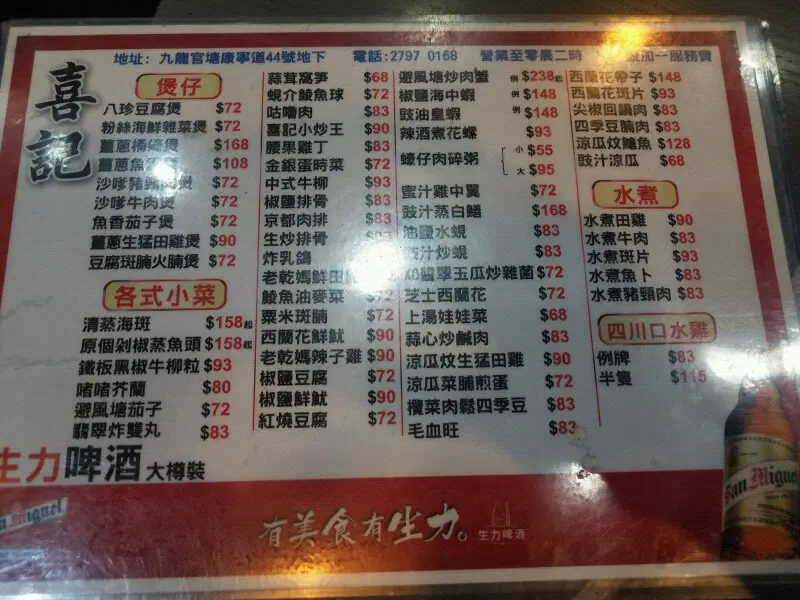 地址: 九龍官塘康寧道44號地下 電話:2797 0168 營業至零晨二時 加一服務費
喜記
煲仔
八珍豆腐煲 $72
粉絲海鮮雜菜煲 $72
薑蔥桶蠔煲 $168
薑蔥魚 煲 $108
沙嗲豬 煲 $72
沙嗲牛肉煲 $72
魚香茄子煲 $72
薑蔥生猛田雞煲 $90
豆腐斑腩火腩煲 $72
各式小菜
清蒸海斑 $158起
原個剁椒蒸魚頭 $158起
鐵板黑椒牛柳粒 $93
啫啫芥蘭 $80
避風塘茄子 $72
翡翠炸雙丸 $83
蒜茸窩笋 $68
蜆介鯪魚球 $72
咕嚕肉 $83
喜記小炒王 $90
腰果雞丁 $83
金銀蛋時菜 $72
中式牛柳 $93
椒鹽排骨 $83
京都肉排 $83
生炒排骨
炸乳鴿
老乾媽鮮田
鯪魚油麥菜 $72
粟米斑腩 $72
西蘭花鮮魷 $90
老乾媽辣子雞 $90
椒鹽豆腐 $72
椒鹽鮮魷 $90
紅燒豆腐 $72
避風塘炒肉蟹 例 $238起
椒鹽海中蝦 例 $148
豉油皇蝦 例 $148
辣酒煮花螺 $93
蠔仔肉碎粥 小 $55
大 $95
蜜汁雞中翼 $72
豉汁蒸白鱔 $168
油鹽水蜆 $83
豉汁炒蜆 $83
XO醬翠玉瓜炒雜菌 $72
芝士西蘭花 $72
上湯娃娃菜 $68
蒜心炒鹹肉 $83
涼瓜炆生猛田雞 $90
涼瓜菜脯煎蛋 $72
欖菜肉鬆四季豆 $83
毛血旺 $83
西蘭花帶子 $148
西蘭花斑片 $93
尖椒回鍋肉 $83
四季豆腩肉 $83
涼瓜炆鱔魚 $128
豉汁涼瓜 $68
水煮
水煮田雞 $90
水煮牛肉 $83
水煮斑片 $93
水煮魚卜 $83
水煮豬頸肉 $83
四川口水雞
例牌 $83
半隻 $115
生力啤酒 大樽裝
San Miguel
有美食有生力。 生力啤酒
San Miguel